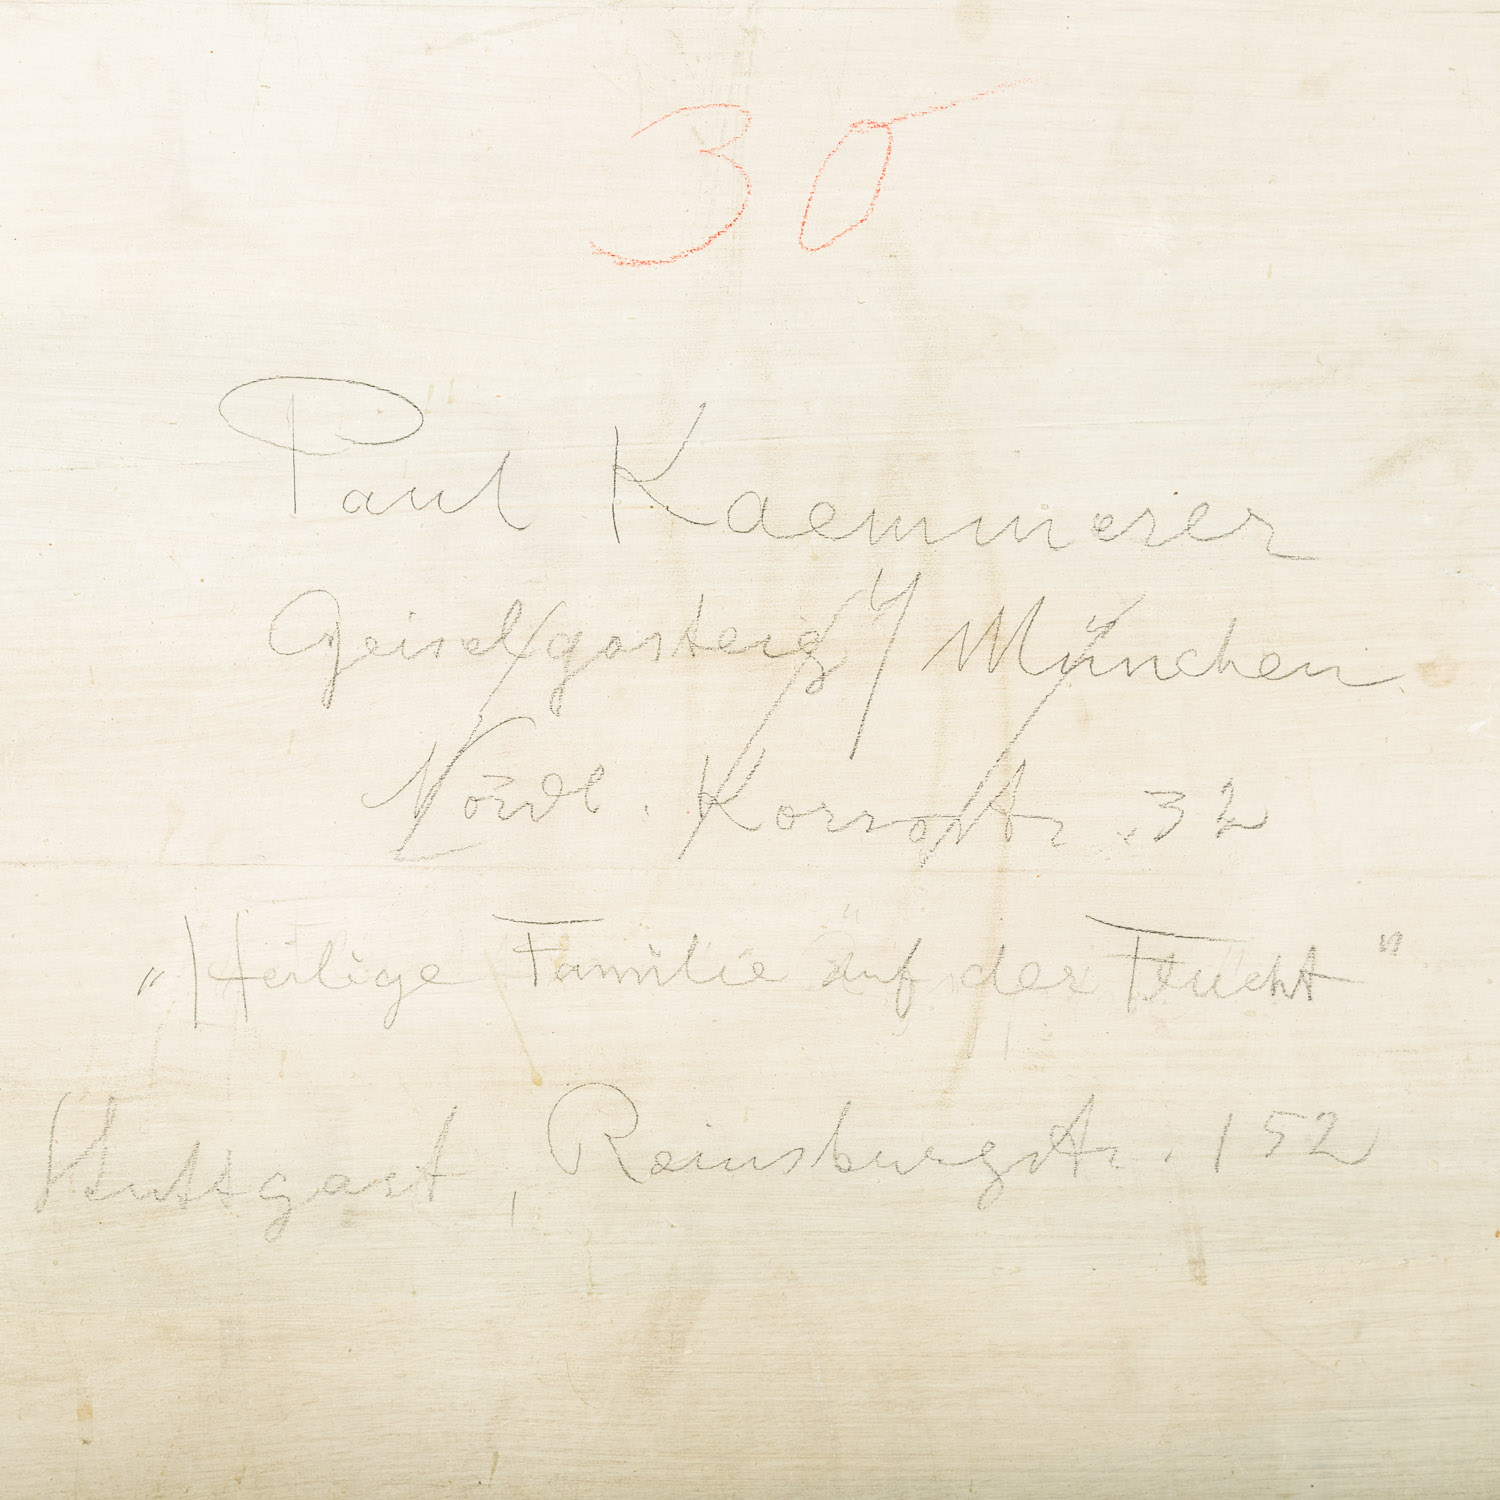 30
Paul Kaemmerer
Geiselgasteig / München
Nördl. 32
„Heilige Familie auf der Flucht"
Stuttgart, Reinsburgstr. 152